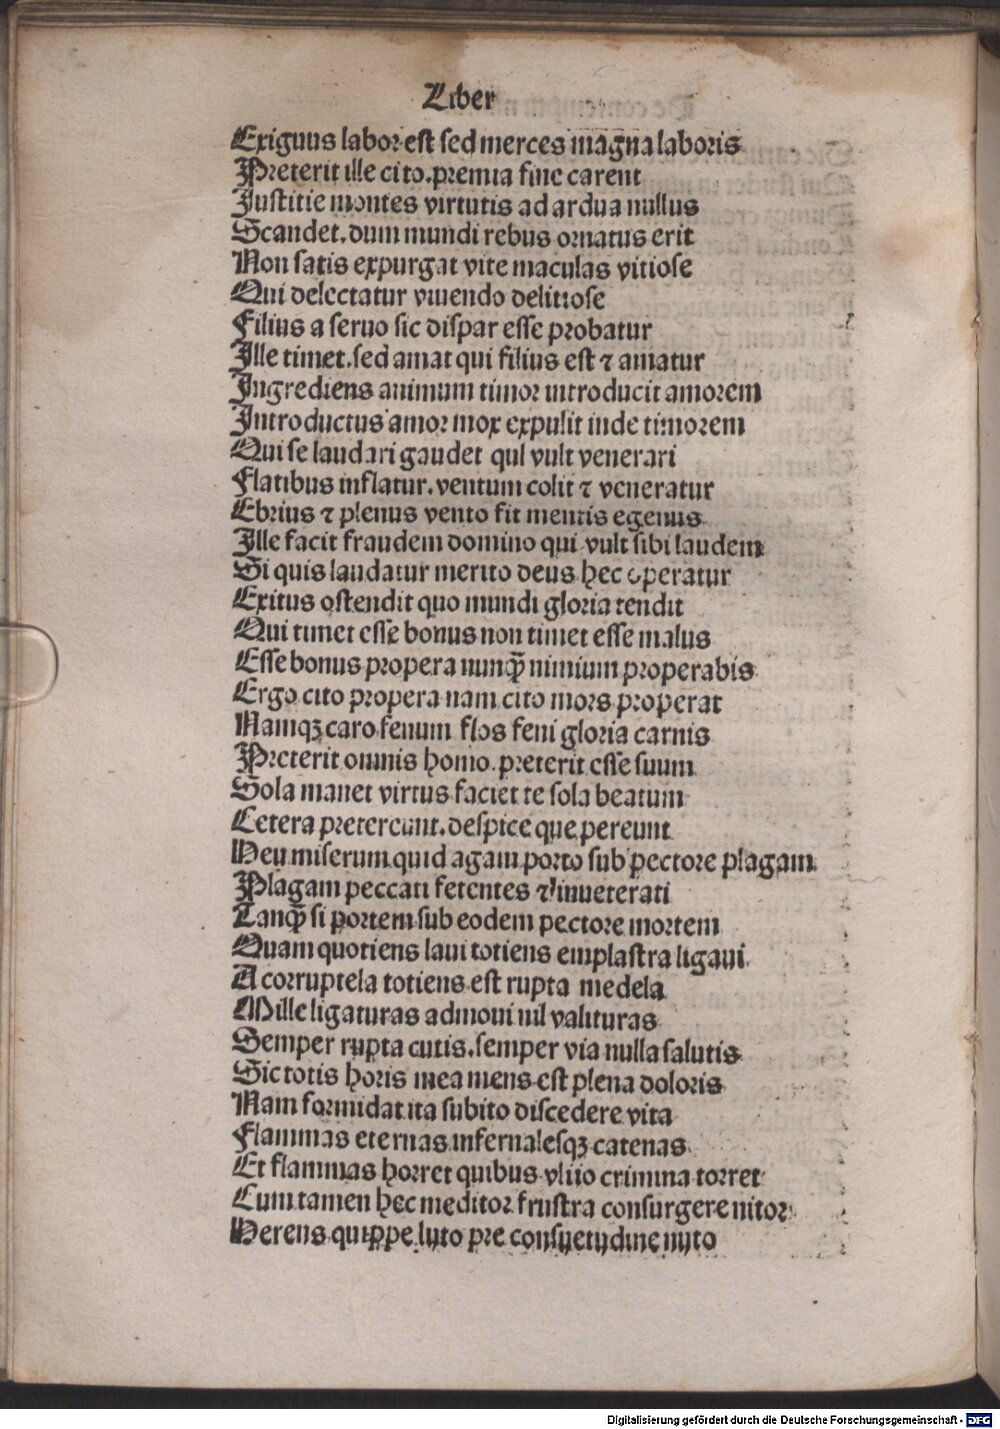 Liber
Exiguus labor est sed merces magna laboris
Preterit ille cito. premia fine carent
Justitie montes virtutis ad ardua nullus
Scandet. dum mundi rebus ornatus erit
Non satis expurgat vite maculas vitiose
Qui delectatur viuendo delitiose
Filius a seruo sic dispar esse probatur
Ille timet. sed amat qui filius est ⁊ amatur
Ingrediens animum timor introducit amorem
Introductus amor mox expulit inde timorem
Qui se laudari gaudet qul vult venerari
Flatibus inflatur. ventum colit ⁊ veneratur
Ebrius ⁊ plenus vento fit mentis egenus
Ille facit fraudem domino qui vult sibi laudem
Si quis laudatur merito deus hec operatur
Exitus ostendit quo mundi gloria tendit
Qui timet esse bonus non timet esse malus
Esse bonus propera nunqꝫ nimium properabis
Ergo cito propera nam cito mors properat
Namqꝫ caro fenum flos feni gloria carnis
Preterit omnis homo. preterit esse suum
Sola manet virtus faciet te sola beatum
Cetera pretereunt. despice que pereunt
Heu miserum quid agam porto sub pectore plagam
Plagam peccati fetentes ⁊ inueterati
Tanqꝫ si portem sub eodem pectore mortem
Quam quotiens laui totiens emplastra ligaui
A corruptela totiens est rupta medela
Mille ligaturas admoui nil valituras
Semper rupta cutis. semper via nulla salutis
Sic totis horis mea mens est plena doloris
Nam formidat ita subito discedere vita
Flammas eternas infernalesqꝫ catenas
Et flammas horret quibus vltio crimina torret
Cum tamen hec meditor frustra consurgere nitor
Herens quippe luto pre consuetudine nuto
Digitalisierung gefördert durch die Deutsche Forschungsgemeinschaft - DFG